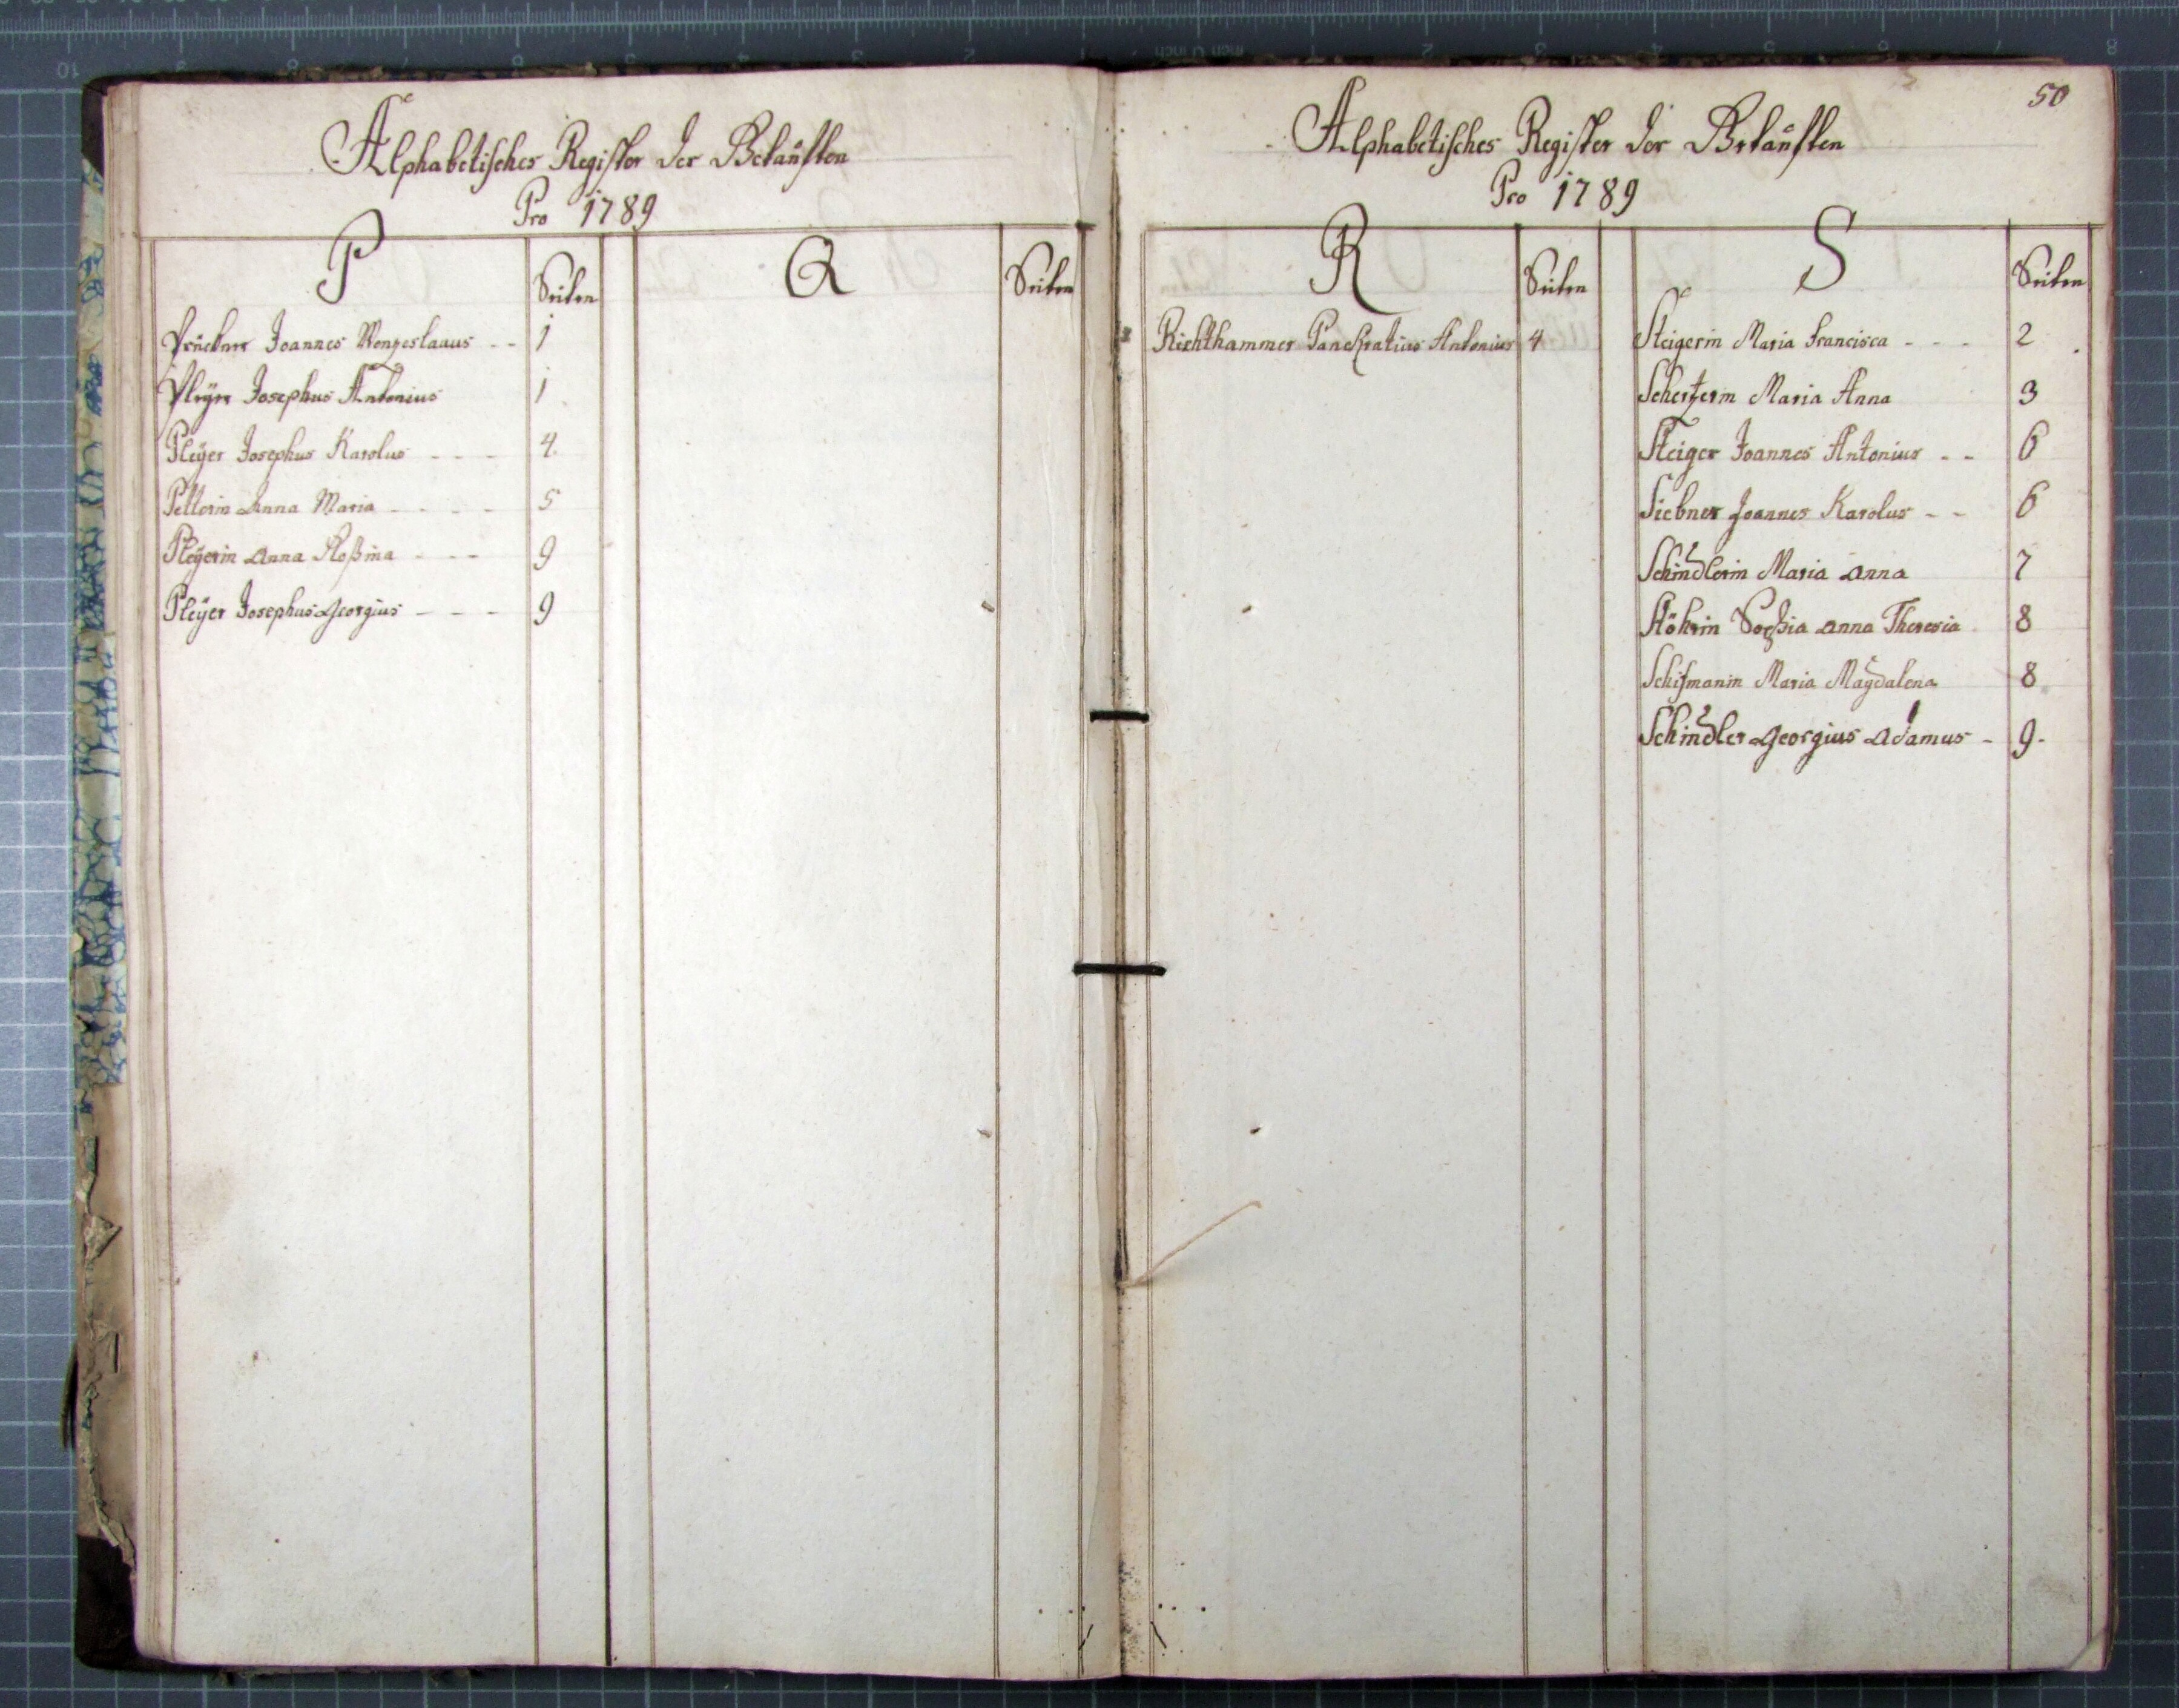 Alphabetisches Register der Betauften
Pro 1789
P
Seiten
Q
Seiten
Prückner Joannes Wenzeslaaus - - 1
Pleÿer Josephus Antonius 1
Pleÿer Josephus Karolus - - - 4.
Pelterin Anna Maria - - - - 5
Pleÿerin Anna Roßina - - - 9
Pleÿer Josephus Georgius - - - 9
50
Alphabetisches Register der Betauften
Pro 1789
R
Seiten
S
Seiten
Richthammer Panckratius Antonius 4
Steigerin Maria Francisca - - - 2
Scherzerin Maria Anna 3
Steiger Joannes Antonius - - 6
Siebner Joannes Karolus - - 6
Schindlerin Maria Anna 7
Stöhrin Anna Theresia 8
Schifmanin Maria Magdalena 8
Schindler Georgius Adamus - 9.